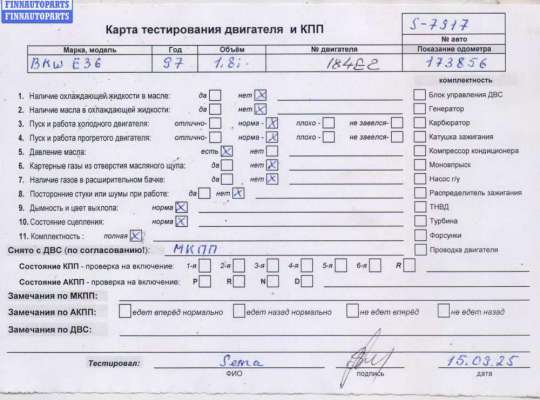 FINNAUTOPARTS
FINNAUTOPARTS
Карта тестирования двигателя и КПП
S-7917
№ авто
Марка, модель Год Объём № двигателя Показание одометра
BMW E36 97 1.8i 184E2 173856
комплектность
1. Наличие охлаждающей жидкости в масле: да нет X
Блок управления ДВС
2. Наличие масла в охлаждающей жидкости: да нет X
Генератор
3. Пуск и работа холодного двигателя: отлично- норма - X плохо - не завелся-
Карбюратор
4. Пуск и работа прогретого двигателя: отлично- норма - X плохо - не завелся-
Катушка зажигания
5. Давление масла: есть X нет
Компрессор кондиционера
6. Картерные газы из отверстия масляного щупа: да нет X
Моновпрыск
7. Наличие газов в расширительном бачке: да нет X
Насос г/у
8. Посторонние стуки или шумы при работе: да нет X
Распределитель зажигания
9. Дымность и цвет выхлопа: норма X
ТНВД
10. Состояние сцепления: норма X
Турбина
11. Комплектность: полная X
Форсунки
Снято с ДВС (по согласованию!): МКПП
Проводка двигателя
Состояние КПП - проверка на включение: 1-я 2-я 3-я 4-я 5-я 6-я R
Состояние АКПП - проверка на включение: P R N D
Замечания по МКПП:
Замечания по АКПП: едет вперёд нормально едет назад нормально не едет вперёд не едет назад
Замечания по ДВС:
Тестировал: Sema 15.03.25
ФИО подпись дата